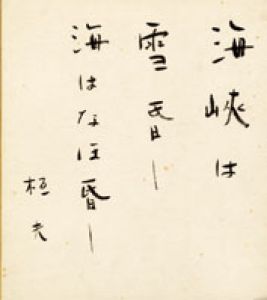 海峡は
雪昏し
海はなほ昏し
桓夫